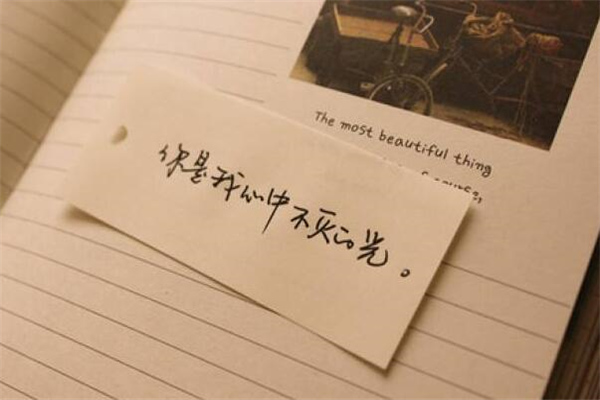 The most beautiful thing
course,
你是我心中不灭的光。